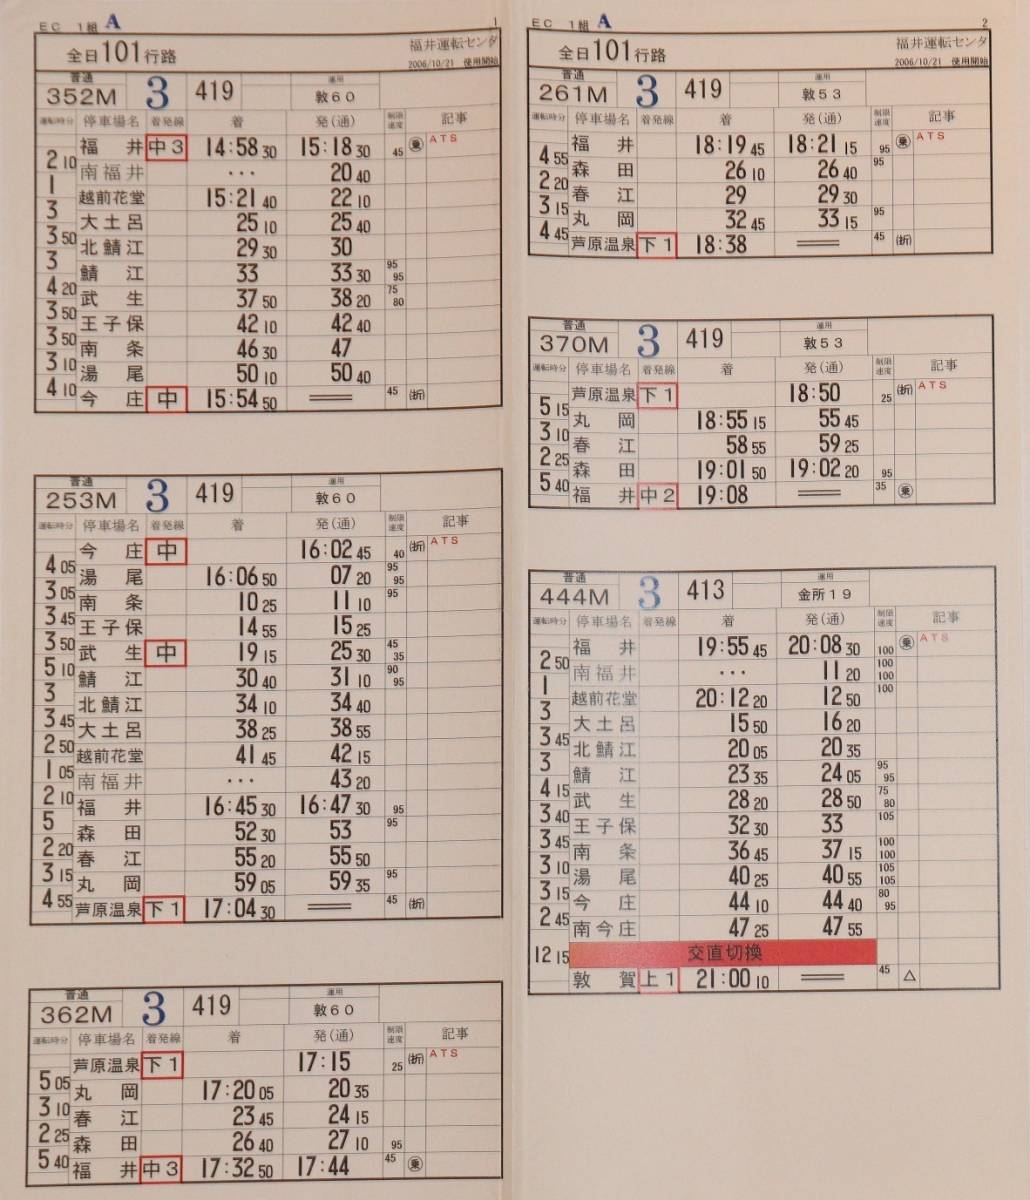 EC 1組 A 1
全日101行路 福井運転センタ
2006/10/21 使用開始
普通 運用
352M 3 419 敦60
運転時分 停車場名 着発線 着 発(通) 制限速度 記事
福井 中3 14:58 30 15:18 30 45 乗 ATS
2 10
南福井 ··· 20 40
1
越前花堂 15:21 40 22 10
3
大土呂 25 10 25 40
3 50
北鯖江 29 30 30
3
鯖江 33 33 30 95 95
4 20
武生 37 50 38 20 75 80
3 50
王子保 42 10 42 40
3 50
南条 46 30 47
3 10
湯尾 50 10 50 40
4 10
今庄 中 15:54 50 ══ 45 (折)
普通 運用
253M 3 419 敦60
運転時分 停車場名 着発線 着 発(通) 制限速度 記事
今庄 中 16:02 45 40 (折) ATS
4 05
湯尾 16:06 50 07 20 95 95
3 05
南条 10 25 11 10 95
3 45
王子保 14 55 15 25
3 50
武生 中 19 15 25 30 45 35
5 10
鯖江 30 40 31 10 90 95
3
北鯖江 34 10 34 40
3 45
大土呂 38 25 38 55
2 50
越前花堂 41 45 42 15
1 05
南福井 ··· 43 20
2 10
福井 16:45 30 16:47 30 95
5
森田 52 30 53 95
2 20
春江 55 20 55 50
3 15
丸岡 59 05 59 35 95
4 55
芦原温泉 下1 17:04 30 ══ 45 (折)
普通 運用
362M 3 419 敦60
運転時分 停車場名 着発線 着 発(通) 制限速度 記事
芦原温泉 下1 17:15 25 (折) ATS
5 05
丸岡 17:20 05 20 35
3 10
春江 23 45 24 15
2 25
森田 26 40 27 10 95
5 40
福井 中3 17:32 50 17:44 45 乗
EC 1組 A 2
全日101行路 福井運転センタ
2006/10/21 使用開始
普通 運用
261M 3 419 敦53
運転時分 停車場名 着発線 着 発(通) 制限速度 記事
福井 18:19 45 18:21 15 95 乗 ATS
4 55
森田 26 10 26 40 95
2 20
春江 29 29 30
3 15
丸岡 32 45 33 15 95
4 45
芦原温泉 下1 18:38 ══ 45 (折)
普通 運用
370M 3 419 敦53
運転時分 停車場名 着発線 着 発(通) 制限速度 記事
芦原温泉 下1 18:50 25 (折) ATS
5 15
丸岡 18:55 15 55 45
3 10
春江 58 55 59 25
2 25
森田 19:01 50 19:02 20 95
5 40
福井 中2 19:08 ══ 35 乗
普通 運用
444M 3 413 金所19
運転時分 停車場名 着発線 着 発(通) 制限速度 記事
福井 19:55 45 20:08 30 100 乗 ATS
2 50
南福井 ··· 11 20 100 100
1
越前花堂 20:12 20 12 50 100
3
大土呂 15 50 16 20
3 45
北鯖江 20 05 20 35
3
鯖江 23 35 24 05 95 95
4 15
武生 28 20 28 50 75 80
3 40
王子保 32 30 33 105
3 45
南条 36 45 37 15 100 100
3 10
湯尾 40 25 40 55 105 105
3 15
今庄 44 10 44 40 80 95
2 45
南今庄 47 25 47 55
12 15
交直切換
敦賀 上1 21:00 10 ══ 45 △